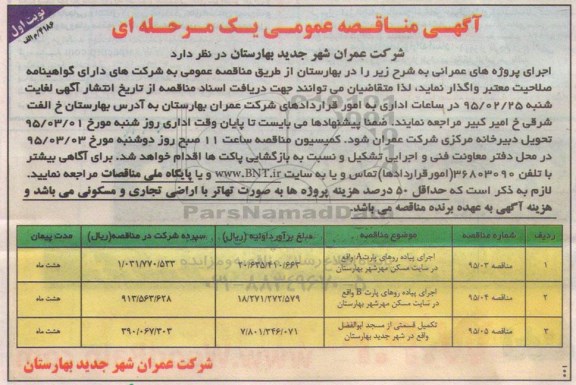 نوبت اول
۴۱۸۶/م الف
آگهی مناقصه عمومی یک مرحله ای
شرکت عمران شهر جدید بهارستان در نظر دارد
اجرای پروژه های عمرانی به شرح زیر را در بهارستان از طریق مناقصه عمومی به شرکت های دارای گواهینامه
صلاحیت معتبر واگذار نماید، لذا متقاضیان می توانند جهت دریافت اسناد مناقصه از تاریخ انتشار آگهی لغایت
شنبه ۹۵/۰۲/۲۵ در ساعات اداری به امور قراردادهای شرکت عمران بهارستان به آدرس بهارستان خ الفت
شرقی خ امیر کبیر مراجعه نمایند. ضمناً پیشنهادها می بایست تا پایان وقت اداری روز شنبه مورخ ۹۵/۰۳/۰۱
تحویل دبیرخانه مرکزی شرکت عمران شود. کمیسیون مناقصه ساعت ۱۱ صبح روز دوشنبه مورخ ۹۵/۰۳/۰۳
در محل دفتر معاونت فنی و اجرایی تشکیل و نسبت به بازگشایی پاکت ها اقدام خواهد شد. برای آگاهی بیشتر
با تلفن ۳۶۸۰۳۰۹۰ (امور قراردادها) تماس و یا به سایت www.BNT.ir و یا پایگاه ملی مناقصات مراجعه نمایید.
لازم به ذکر است که حداقل ۵۰ درصد هزینه پروژه ها به صورت تهاتر با اراضی تجاری و مسکونی می باشد و
هزینه آگهی به عهده برنده مناقصه می باشد.
ParsNamadData
ردیف شماره مناقصه موضوع مناقصه مبلغ برآورد اولیه (ریال) سپرده شرکت در مناقصه(ریال) مدت پیمان
۱ مناقصه ۹۵/۰۳ اجرای پیاده روهای پارت A واقع در سایت مسکن مهر شهر بهارستان ۲۰/۶۳۵/۴۱۰/۶۶۳ ۱/۰۳۱/۷۷۰/۵۳۳ هشت ماه
۲ مناقصه ۹۵/۰۴ اجرای پیاده روهای پارت B واقع در سایت مسکن مهر شهر بهارستان ۱۸/۲۷۱/۲۷۲/۵۷۹ ۹۱۳/۵۶۳/۶۲۸ هشت ماه
۳ مناقصه ۹۵/۰۵ تکمیل قسمتی از مسجد ابوالفضل واقع در شهر جدید بهارستان ۷/۸۰۱/۳۴۶/۰۷۱ ۳۹۰/۰۶۷/۳۰۳ هشت ماه
شرکت عمران شهر جدید بهارستان